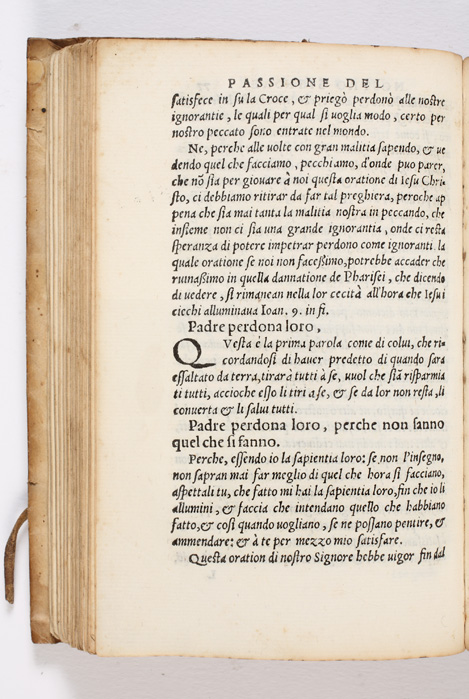 PASSIONE DEL
satisfece in su la Croce, & priegò perdonò alle nostre
ignorantie, le quali per qual si voglia modo, certo per
nostro peccato sono entrate nel mondo.
Ne, perche alle volte con gran malitia sapendo, & ue
dendo quel che facciamo, pecchiamo, d'onde puo parer,
che nõ sia per giovare à noi questa oratione di Iesu Chri-
sto, ci debbiamo ritirar da far tal preghiera, peroche ap
pena che sia mai tanta la malitia nostra in peccando, che
insieme non ci sia una grande ignorantia, onde ci resta
speranza di potere impetrar perdono come ignoranti. la
quale oratione se noi non facessimo, potrebbe accader che
ruinassimo in quella dannatione de Pharisei, che dicendo
di uedere, si rimanean nella lor cecità all'hora che Iesu i
ciechi alluminava Ioan. 9. in fi.
Padre perdona loro,
QVesta è la prima parola come di colui, che ri-
cordandosi di hauer predetto di quando sara
essaltato da terra, tirarà tutti à se, uuol che siã risparmia
ti tutti, accioche esso li tiri a se, & se da lor non resta, li
conuerta & li salui tutti.
Padre perdona loro, perche non sanno
quel che si fanno.
Perche, essendo io la sapientia loro: se non l'insegno,
non sapran mai far meglio di quel che hora si facciano,
aspettali tu, che fatto mi hai la sapientia loro, fin che io li
allumini, & faccia che intendano quello che habbiano
fatto, & così quando vogliano, se ne possano pentire, &
ammendare: & à te per mezzo mio satisfare.
Questa oration di nostro Signore hebbe uigor fin dal